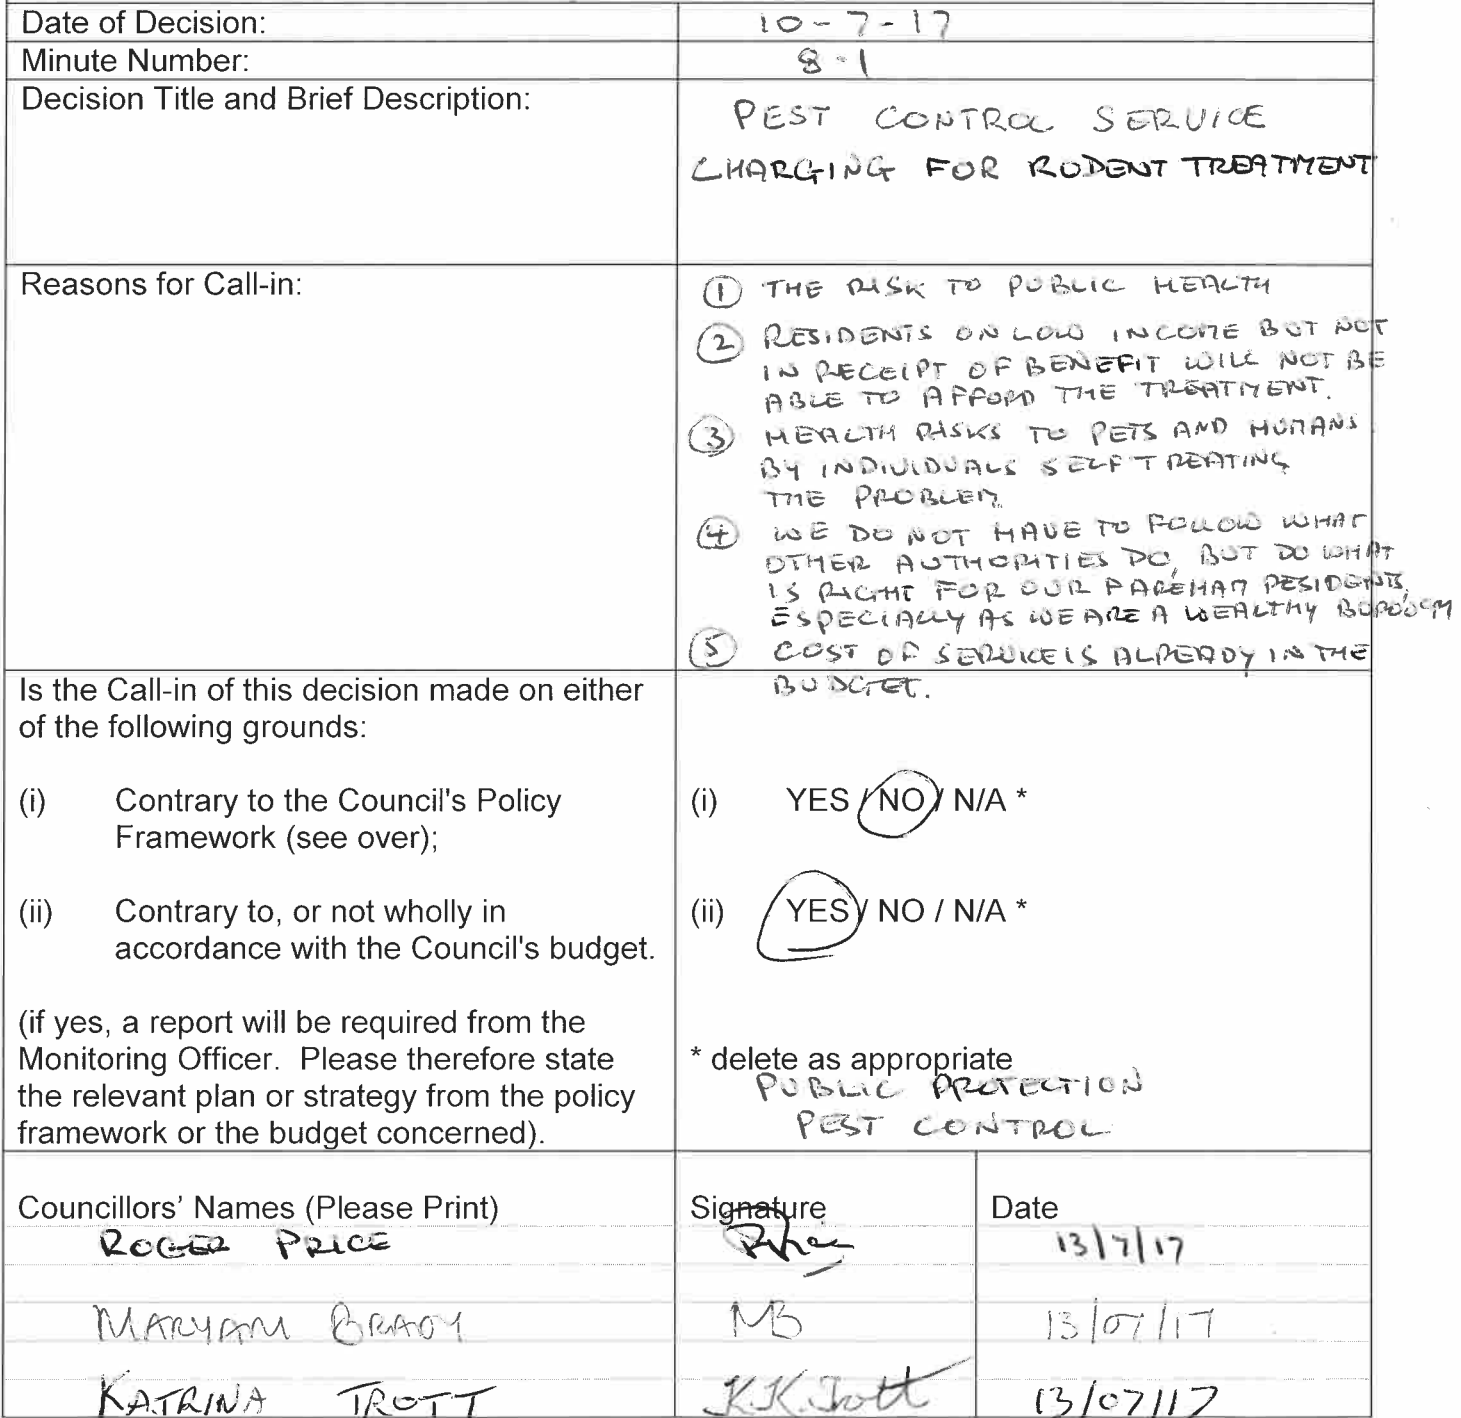 Date of Decision: 10-7-17
Minute Number: 8-1
Decision Title and Brief Description: PEST CONTROL SERVICE
CHARGING FOR RODENT TREATMENT
Reasons for Call-in:
① THE RISK TO PUBLIC HEALTH
② RESIDENTS ON LOW INCOME BUT NOT
IN RECEIPT OF BENEFIT WILL NOT BE
ABLE TO AFFORD THE TREATMENT.
③ HEALTH RISKS TO PETS AND HUMANS
BY INDIVIDUALS SELF TREATING
THE PROBLEM
④ WE DO NOT HAVE TO FOLLOW WHAT
OTHER AUTHORITIES DO, BUT DO WHAT
IS RIGHT FOR OUR FAREHAM RESIDENTS,
ESPECIALLY AS WE ARE A WEALTHY BOROUGH
⑤ COST OF SERVICE IS ALREADY IN THE
BUDGET.
Is the Call-in of this decision made on either
of the following grounds:
(i) Contrary to the Council's Policy
Framework (see over);
(i) YES / NO / N/A *
(ii) Contrary to, or not wholly in
accordance with the Council's budget.
(ii) YES / NO / N/A *
(if yes, a report will be required from the
Monitoring Officer. Please therefore state
the relevant plan or strategy from the policy
framework or the budget concerned).
* delete as appropriate
PUBLIC PROTECTION
PEST CONTROL
Councillors' Names (Please Print) Signature Date
ROGER PRICE 13/7/17
MARYAM BRADY MB 13/07/17
KATRINA TROTT K.K.Trott 13/07/17